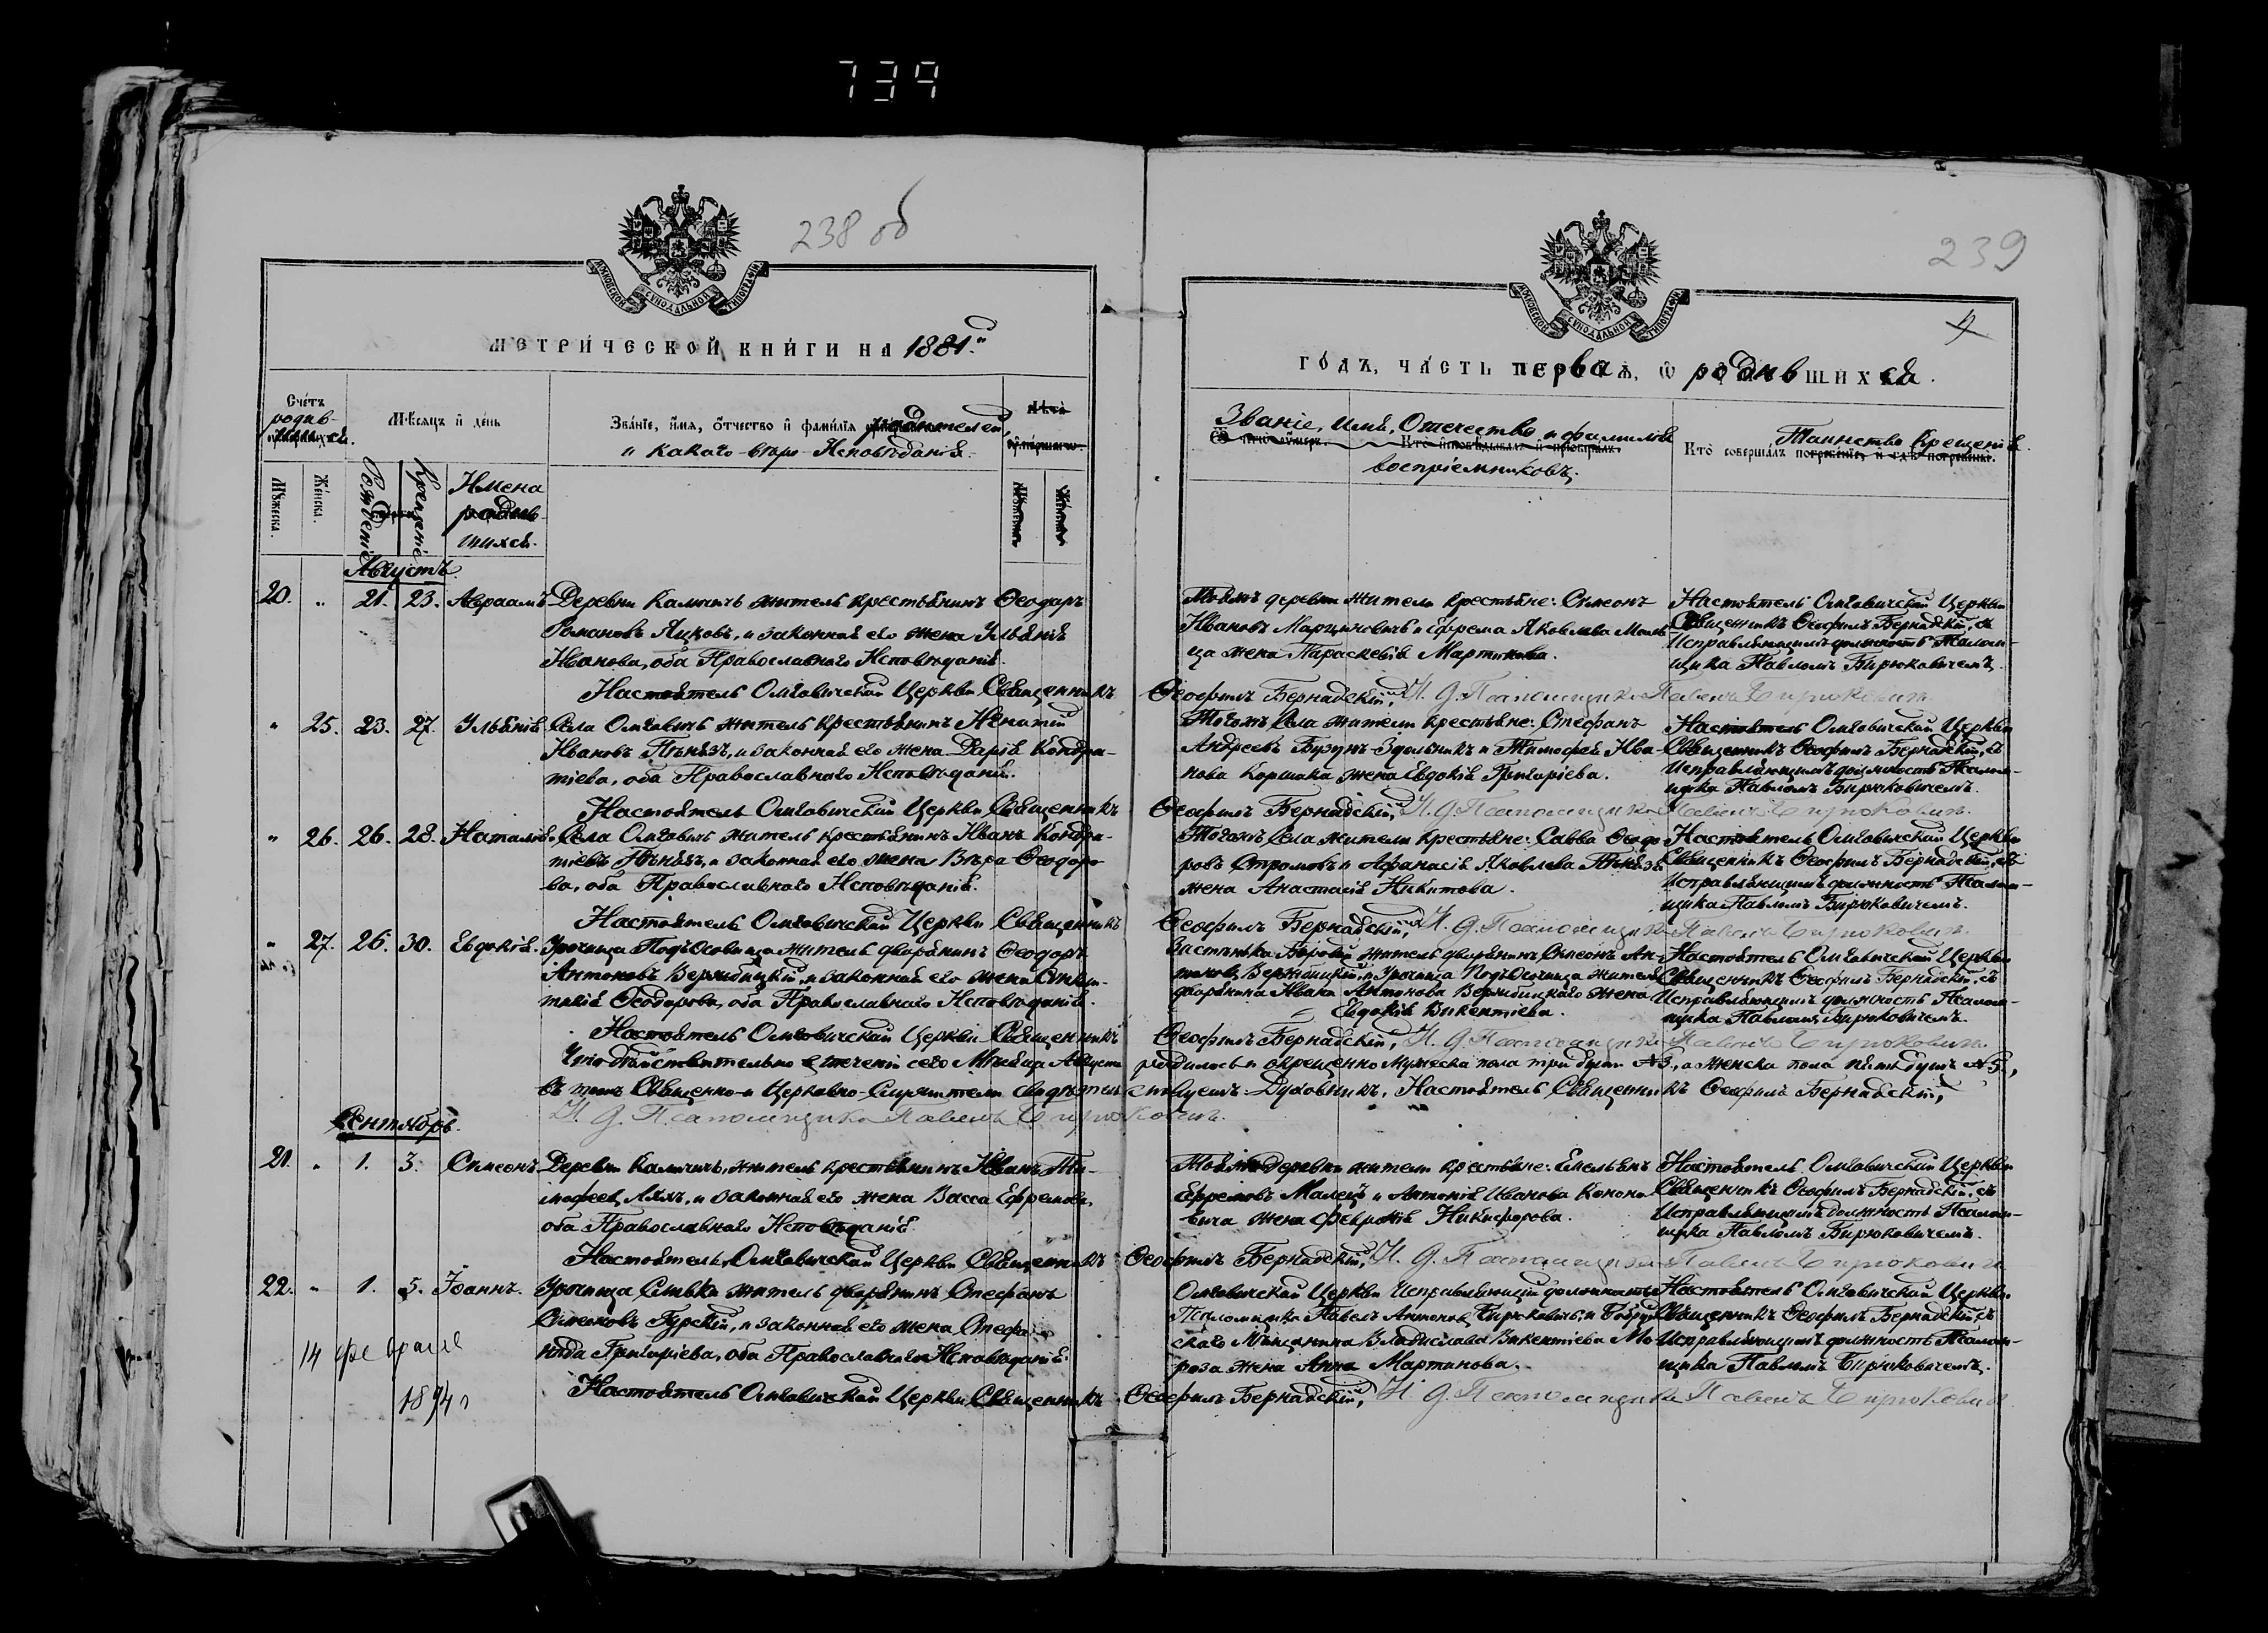 739
238 об
МОСКОВСКОЙ СѴНОДАЛЬНОЙ ТИПОГРАФІИ
МЕТРИЧЕСКОЙ КНИГИ НА 1881й
Счетъ родив-
шихся.
Мѣсяцъ и день
Званіе, имя, отчество и фамилія родителей,
и какаго вѣро-Исповѣданія.
Лѣта
Мꙋжеска.
Женска.
Рожденіе
Крещеніе
Имена
родив-
шихся.
Августъ.
20. „ 21. 23. Авраамъ Деревни Каличъ житель крестьянинъ Ѳеодоръ
Романовъ Яцковъ, и законная его жена Ульянія
Иванова, оба Православнаго Исповѣданія.
Настоятель Омговичской Церкви Священникъ
„ 25. 23. 27. Ульянія. Села Омговичъ житель крестьянинъ Игнатій
Ивановъ Пѣнязь, и законная его жена Дарія Кондра-
тіева, оба Православнаго Исповѣданія.
Настоятель Омговичской Церкви Священникъ
„ 26. 26. 28. Наталія. Села Омговичъ житель крестьянинъ Иванъ Кондра-
тіевъ Пѣнязь, и законная его жена Вѣра Ѳеодоро-
ва, оба Православнаго Исповѣданія.
Настоятель Омговичской Церкви Священникъ
„ 27. 26. 30. Евдокія. Урочища Подъосовища житель дворянинъ Ѳеодоръ
Антоновъ Вержбицкій, и законная его жена
Ѳеодорова, оба Православнаго Исповѣданія.
Настоятель Омговичской Церкви Священникъ
Что дѣйствительно въ теченіи сего Мѣсяца Августа
въ томъ Священно-и Церковно-Служители свидѣтель-
И. д. Псаломщика Павелъ Бирюковичъ.
Сентябрь.
21. „ 1. 3. Симеонъ. Деревни Каличъ, житель крестьянинъ Иванъ Ти-
мофеевъ Ляхъ, и законная его жена Васса Ефремова,
оба Православнаго Исповѣданія.
Настоятель Омговичской Церкви Священникъ
22. „ 1. 5. Іоаннъ. Урочища Сливки житель дворянинъ Стефанъ
Симеоновъ Гурскій, и законная его жена Стефа-
нида Григоріева, оба Православнаго Исповѣданія.
14 февраля
1894 г
Настоятель Омговичской Церкви Священникъ
239
МОСКОВСКОЙ СѴНОДАЛЬНОЙ ТИПОГРАФІИ
ГОДЪ, ЧАСТЬ перваѧ, Ѡ родившихся.
Званіе, имя, Отечество и фамилія
воспріемниковъ.
Кто совершалъ Таинство Крещенія.
Тойжъ деревни жители крестьяне: Симеонъ
Ивановъ Марциновичъ и Ефрема Яковлева Мале-
ца жена Параскевія Мартинова.
Настоятель Омговичской Церкви
Священникъ Ѳеофилъ Бернадскій, съ
Исправляющимъ должность Псалом-
щика Павломъ Бирюковичемъ.
Ѳеофилъ Бернадскій, И. д. Псаломщика Павелъ Бирюковичъ.
Тогожъ Села жители крестьяне: Стефанъ
Андреевъ Бузунъ-Здольникъ и Тимофея Ива-
нова Коршака жена Евдокія Григоріева.
Настоятель Омговичской Церкви
Священникъ Ѳеофилъ Бернадскій, съ
Исправляющимъ должность Псалом-
щика Павломъ Бирюковичемъ.
Ѳеофилъ Бернадскій, И. д. Псаломщика Павелъ Бирюковичъ.
Тогожъ Села жители крестьяне: Савва Ѳеодо-
ровъ Стромовъ и Афанасія Яковлева Пѣнязя
жена Анастасія Никитова.
Настоятель Омговичской Церкви
Священникъ Ѳеофилъ Бернадскій, съ
Исправляющимъ должность Псалом-
щика Павломъ Бирюковичемъ.
Ѳеофилъ Бернадскій, И. д. Псаломщика Павелъ Бирюковичъ.
Застѣнка житель дворянинъ Симеонъ Ан-
тоновъ Вержбицкій, и Урочища Подъосовища жителя
дворянина Ивана Антонова Вержбицкаго жена
Евдокія Викентіева.
Настоятель Омговичской Церкви
Священникъ Ѳеофилъ Бернадскій, съ
Исправляющимъ должность Псалом-
щика Павломъ Бирюковичемъ.
Ѳеофилъ Бернадскій, И. д. Псаломщика Павелъ Бирюковичъ.
родилось и окрещено Мужеска пола три души №3., а женска пола пять душъ №5.,
ствуемъ. Духовникъ, Настоятель Священникъ Ѳеофилъ Бернадскій,
Тойжъ деревни жители крестьяне: Емельянъ
Ефремовъ Малецъ и Антонія Иванова Кононо-
вича жена Февронія Никифорова.
Настоятель Омговичской Церкви
Священникъ Ѳеофилъ Бернадскій, съ
Исправляющимъ должность Псалом-
щика Павломъ Бирюковичемъ.
Ѳеофилъ Бернадскій, И. д. Псаломщика Павелъ Бирюковичъ
Омговичской Церкви Исправляющій должность
Псаломщика Павелъ Антоновъ Бирюковичъ, и Бобруй-
скаго Мѣщанина Владислава Викентіева Мо-
роза жена Анна Мартинова.
Настоятель Омговичской Церкви
Священникъ Ѳеофилъ Бернадскій, съ
Исправляющимъ должность Псалом-
щика Павломъ Бирюковичемъ.
Ѳеофилъ Бернадскій, И. д. Псаломщика Павелъ Бирюковичъ